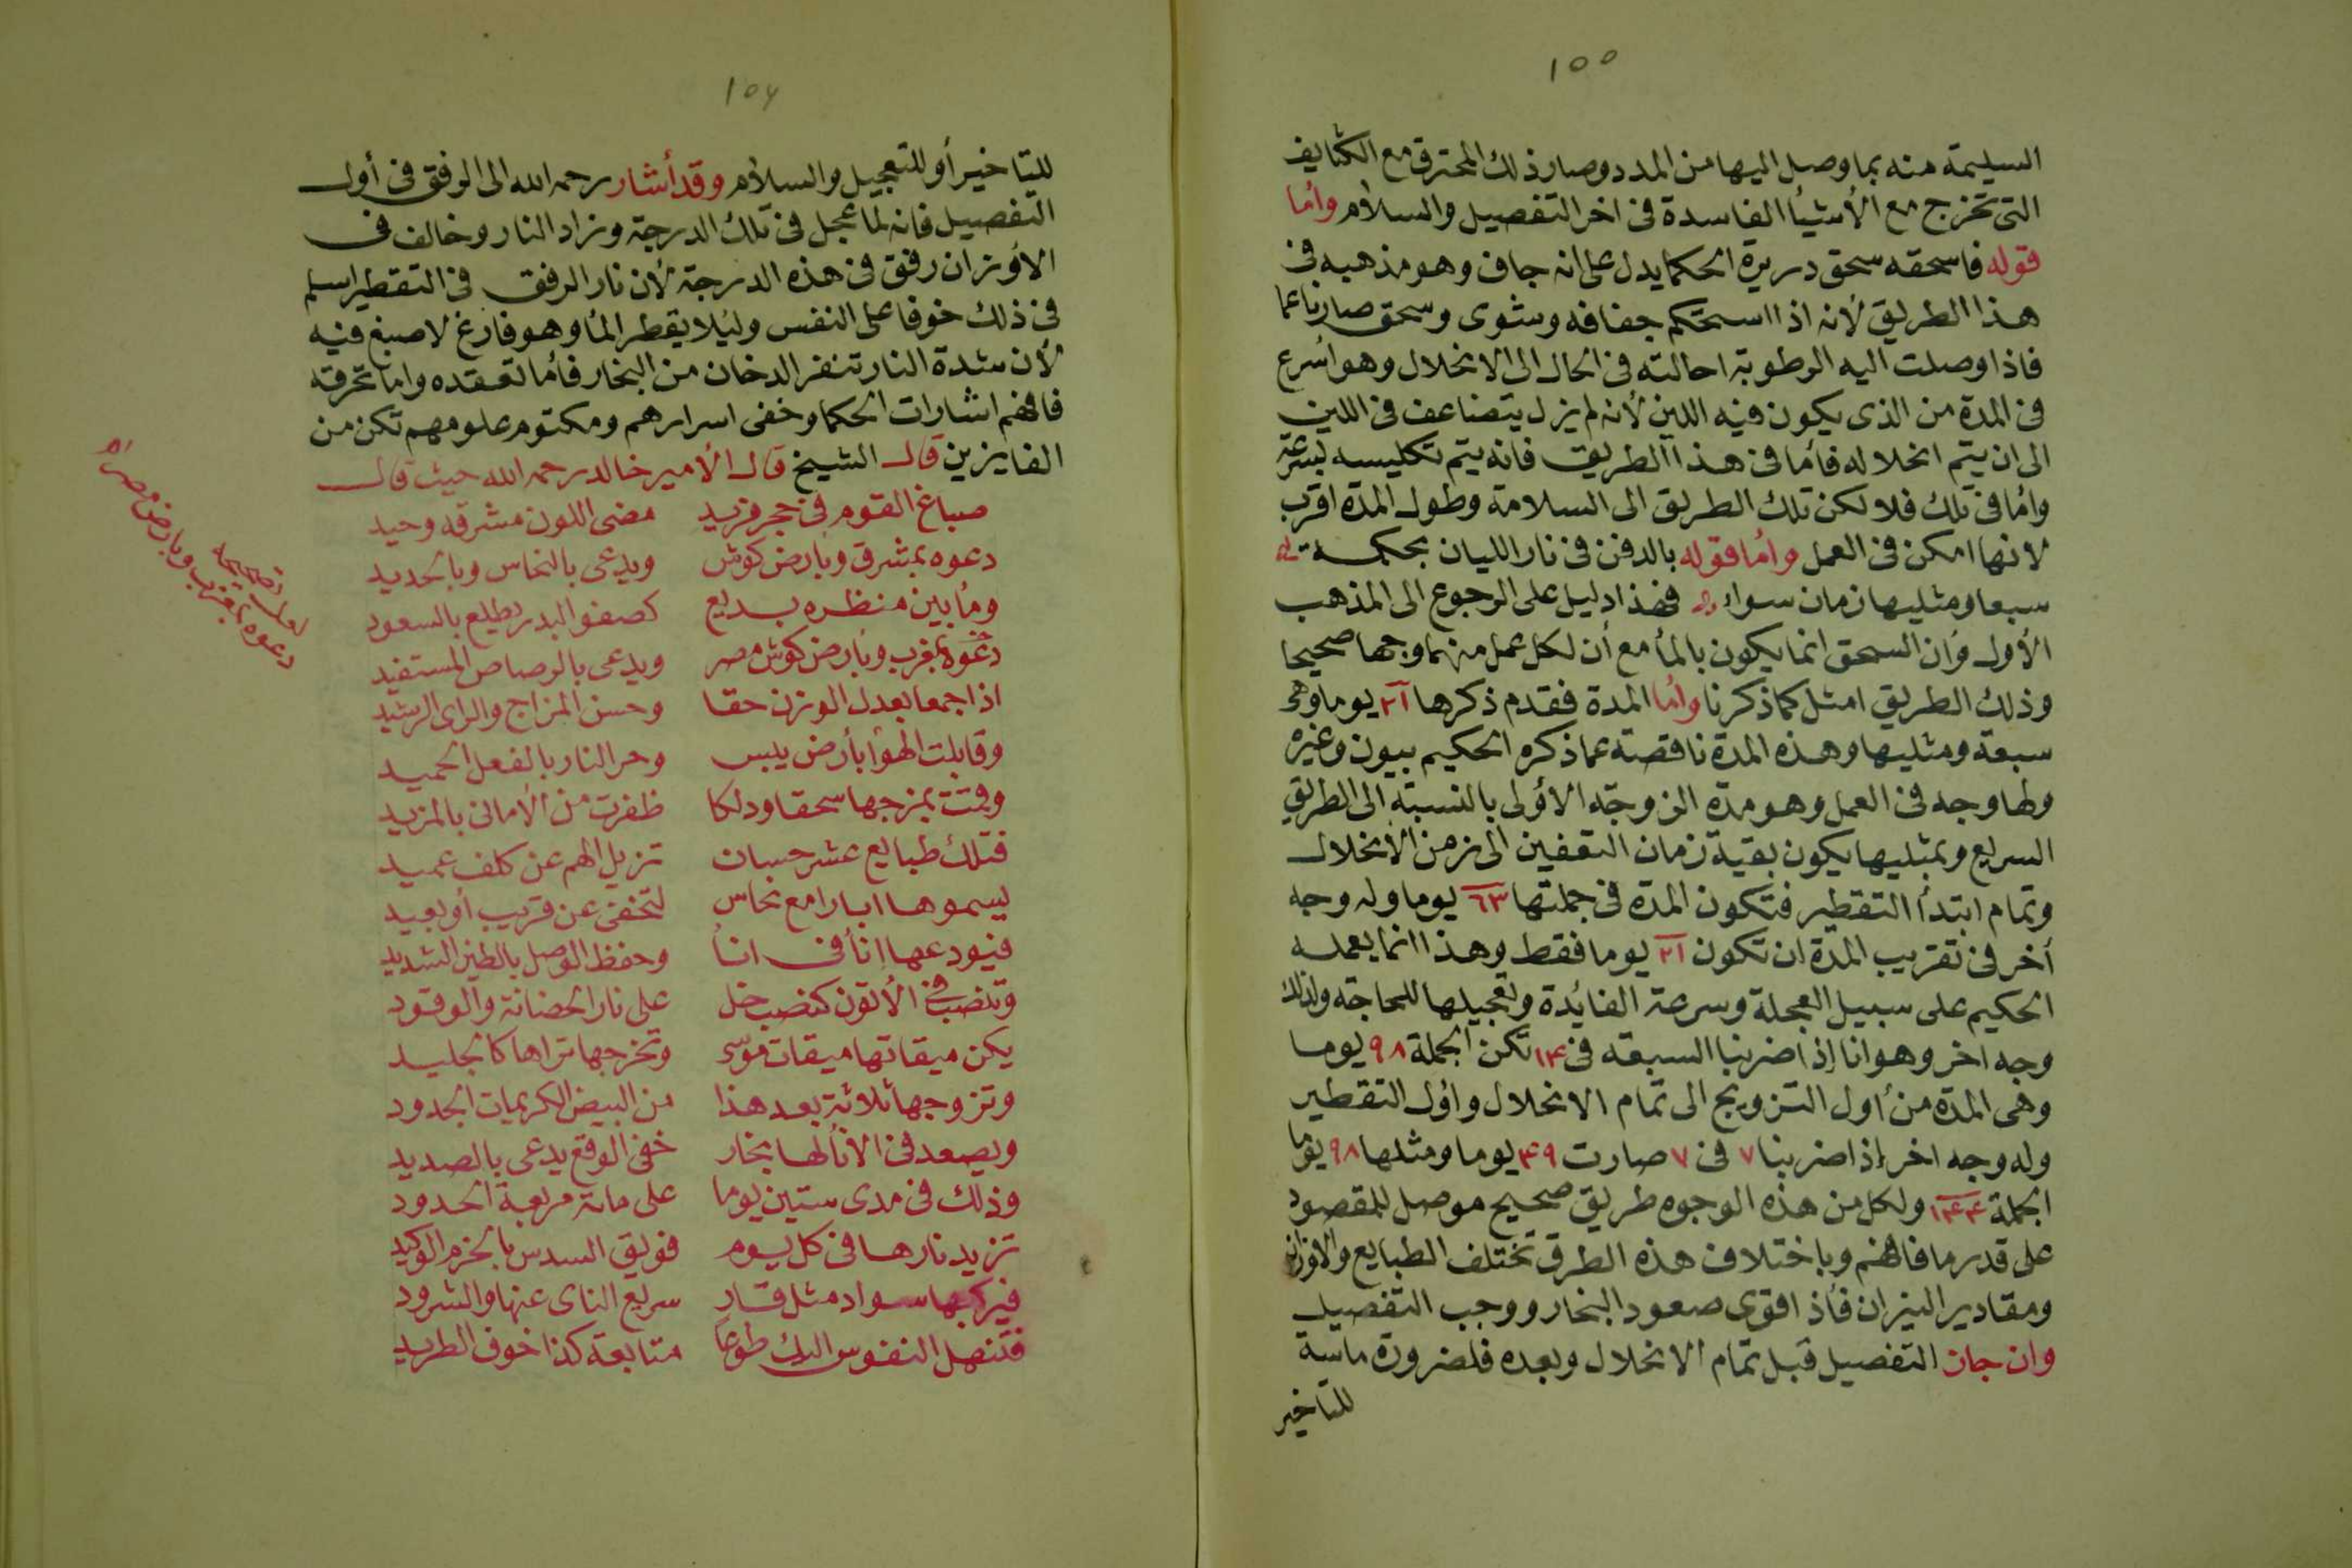 ١٥٥
السليمة منه بما وصل اليها من المدد وصار ذلك المحترق مع الكثايف
التى تخرج مع الأشيأ الفاسدة فى اخر التفصيل والسلام وأما
قوله فاسحقه سحق دريرة الحكما يدل على انه جاف وهو مذهبه فى
هذا الطريق لأنه اذا استحكم جفافه وشوى وسحق صار ناعما
فاذا وصلت اليه الرطوبة احالته فى الحال الى الانحلال وهو أسرع
فى المدة من الذى يكون فيه اللين لأنه لم يزل يتضاعف فى اللين
الى ان يتم انحلاله فأما فى هذا الطريق فانه يتم تكليسه بسرعة
واما فى تلك فلا لكن تلك الطريق الى السلامة وطول المدة اقرب
لانها امكن فى العمل وأما قوله بالدفن فى نار الليان بحكمة
سبعا ومثليها زمان سواء فهذا دليل على الرجوع الى المذهب
الأول وأن السحق انما يكون بالمأ مع أن لكل عمل منهما وجها صحيحا
وذلك الطريق امثل كما ذكرنا وأما المدة فقدم ذكرها ٢١ يوما وهى
سبعة ومثليها وهذه المدة ناقصة عما ذكره الحكيم بيون وغيره
ولها وجه فى العمل وهو مدة الزوجة الأولى بالنسبة الى الطريق
السريع وبمثليها يكون بقية زمان التعفين الى زمن الانحلال
وتمام ابتدأ التقطير فتكون المدة فى جملتها ٦٣ يوما وله وجه
أخر فى تقريب المدة ان تكون ٢١ يوما فقط وهذا انما يعمله
الحكيم على سبيل العجلة وسرعة الفائدة وتعجيلها للحاجة ولذلك
وجه اخر وهو انا إذا ضربنا السبعة فى ١٤ تكن الجملة ٩٨ يوما
وهى المدة من أول التزويج الى تمام الانحلال وأول التقطير
وله وجه اخر إذا ضربنا ٧ فى ٧ صارت ٤٩ يوما ومثلها ٩٨ يوما
الجملة ١٤٤ ولكل من هذه الوجوه طريق صحيح موصل للمقصود
على قدر ما فافهم وباختلاف هذه الطرق تختلف الطبايع والاوزان
ومقادير النيران فأذا قوى صعود البخار ووجب التفصيل
وان جان التفصيل قبل تمام الانحلال وبعده فلضرورة ماسة
للتاخير
١٥٦
للتاخير أو للتعجيل والسلام وقد أشار رحمه الله الى الرفق فى أول
التفصيل فانه لما عجل فى تلك الدرجة وزاد النار وخالف فى
الاوزان رفق فى هذه الدرجة لأن نار الرفق فى التقطير اسلم
فى ذلك خوفا على النفس وليلا يقطر المأ وهو فارغ لا صبغ فيه
لأن شدة النار تنفر الدخان من البخار فأما تعقده واما تحرقه
فافهم اشارات الحكما وخفى اسرارهم ومكتوم علومهم تكن من
الفايزين قال الشيخ قال الأمير خالد رحمه الله حيث قال
صباغ القوم فى حجر فريد مضى اللون مشرقه وحيد
دعوه بمشرق وبأرض كوش ويدعى بالنحاس وبالحديد
وما بين منظره بديع كصفو البدر يطلع بالسعود
دعوه بمغرب وبأرض كوش مصر ويدعى بالرصاص المستفيد
اذا جمعا بعدل الوزن حقا وحسن المزاج والراى الرشيد
وقابلت الهوا بأرض يبس وحر النار بالفعل الحميد
وقمت بمزجها سحقا ودلكا ظفرت من الأمانى بالمزيد
فتلك طبايع عشر حسان تزيل الهم عن كلف عميد
ليسموها ابارا مع نحاس لتخفى عن قريب أو بعيد
فيودعها انأ فى انأ وحفظ الوصل بالطين الشديد
وتنصب فى الأتون كنصب خل على نار الحضانة والوقود
يكن ميقاتها ميقات موسى وتخرجها تراها كالجليد
وتزوجها ثلاثة بعد هذا من البيض الكريمات الجدود
ويصعد فى الانأ لها بخار خفى الوقع يدعى بالصديد
وذلك فى مدى ستين يوما على مائة مربعة الحدود
تزيد نارها فى كل يوم فويق السدس بالحزم الوكيد
فيركبها سواد مثل قار سريع الناى عنها والشرود
فتنهل النفوس اليك طوعا متابعة كذا خوف الطريد
دعوه بمغرب وبارض مصراه